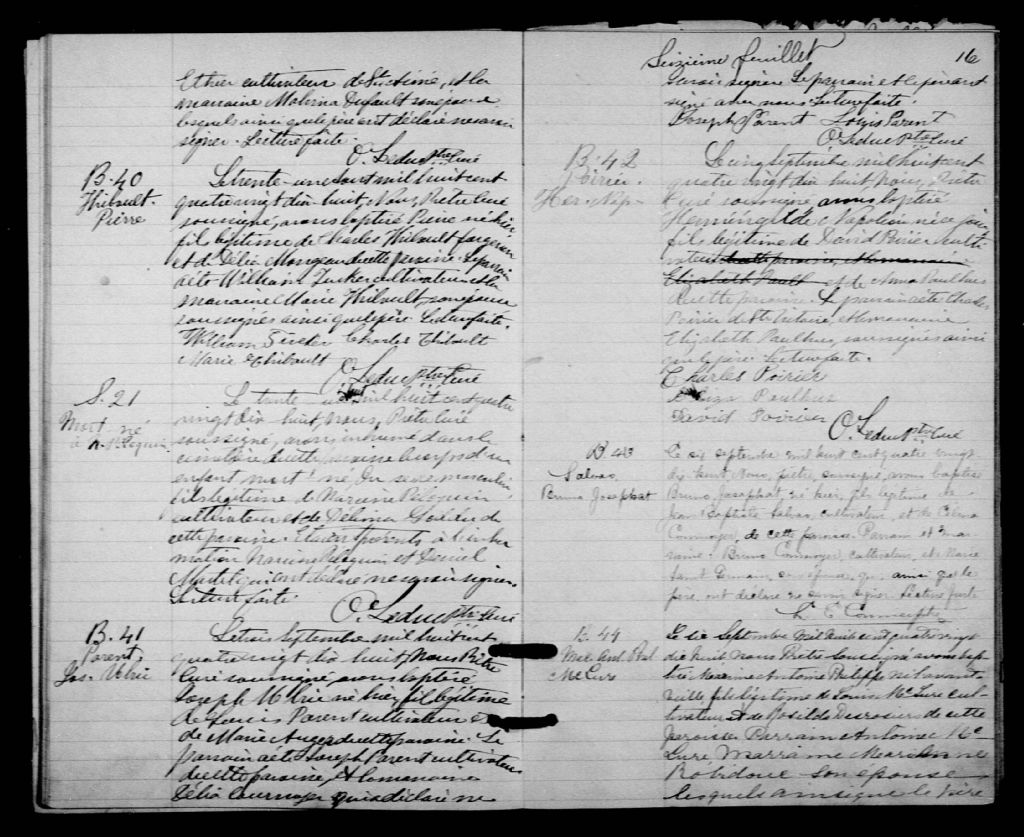 Ethier cultivateur de St Aimé, et la
marraine Malvina Dufault son épouse
lesquels ainsi que le père ont déclaré ne savoir
signer. Lecture faite.
O. Leduc Ptre Curé
B. 40
Thibault
Pierre
Le trente-une août mil huit cent
quatre vingt dix-huit, Nous, Prêtre Curé
soussigné, avons baptisé Pierre né hier
fils légitime de Charles Thibault forgeron
et de Délia Mongeau de cette paroisse. Le parrain
a été William Tucker cultivateur et la
marraine Marie Thibault, son épouse
soussignés ainsi que le père. Lecture faite.
William Charles Thibault
Marie Thibault
O. Leduc Ptre Curé
S. 21
Mort né
à N. Peloquin
Le trente mil huit cent quatre
vingt dix-huit, nous, Prêtre Curé
soussigné, avons inhumé dans le
cimetière de cette paroisse le corps d'un
enfant mort né, du sexe masculin,
fils légitime de Narcisse Peloquin
cultivateur et de Délima de
cette paroisse. Etaient présents à l'inhu
mation Narcisse Peloquin et Daniel
qui ont déclaré ne savoir signer.
Lecture faite.
O. Leduc Ptre Curé
B. 41
Parent
Jos. Ulric
Le trois Septembre mil huit cent
quatre vingt dix huit, Nous Prêtre
Curé soussigné, avons baptisé
Joseph Ulric né hier, fils légitime
de Louis Parent cultivateur &
de Marie Auger de cette paroisse. Le
parrain a été Joseph Parent cultivateur
de cette paroisse, et la marraine
Délia Cournoyer qui a déclaré ne
Seizième feuillet 16
savoir signer. Le parrain et le père ont
signé avec nous. Lecture faite.
Joseph Parent Louis Parent
O. Leduc Ptre Curé
B. 42
Poirier
Her. Nap.
Le cinq Septembre mil huit cent
quatre vingt dix huit, Nous, Prêtre
Curé soussigné, avons baptisé
Herménégilde Napoléon né ce jour
fils légitime de David Poirier culti
vateur de cette paroisse, et la marraine
Elizabeth Paulh et de Anna Paulhus
de cette paroisse. Le parrain a été Charles
Poirier de St Victoire, et la marraine
Elizabeth Paulhus, soussignés ainsi
que le père. Lecture faite.
Charles Poirier
Eliza Paulhus
David Poirier
O. Leduc Ptre Curé
B. 43
Salvas
Bruno Josephat
Le six septembre mil huit cent quatre vingt
dix huit, Nous, prêtre, soussigné, avons baptisé
Bruno, Josephat, né hier, fils légitime de
Jean Baptiste Salvas, cultivateur, et de Célina
Cournoyer, de cette paroisse. Parrain et mar
raine: Bruno Cournoyer, cultivateur, et Marie
Saint Germain, son épouse, qui, ainsi que le
père, ont déclaré ne savoir signer. Lecture faite
B. 44
Mar. Ant. Phil
McLure
Le dix Septembre Mil huit cent quatre vingt
dix huit, nous Prêtre soussigné avons bap
tisé Antoine Philippe né l'avant
veille fils légitime de Louis McLure cul
tivateur et de Rosilda Desrosiers de cette
paroisse. Parrain Antoine Mc
Lure, Marraine Marianne
Robidoux son épouse
lesquels ainsi que le Père